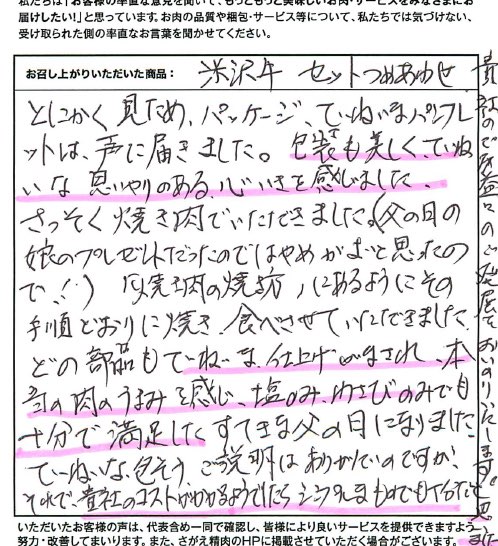 私たちは「お客様の率直な意見を聞いて、もっともっと美味しいお肉・サービスをみなさまにお
届けしたい!」と思っています。お肉の品質や梱包・サービス等について、私たちでは気づけない、
受け取られた側の率直なお言葉を聞かせてください。
お召し上がりいただいた商品: 米沢牛 セットつめあわせ
とにかく見ため、パッケージ、ていねいなパンフレ
ットは、声に届きました。包装も美しく、ていね
いな思いやりのある、心いきを感じました。
さっそく焼き肉でいただきました。(父の日の
娘のプレゼントだったのではやめがよいと思ったの
で、!)「焼き肉の焼き方」にあるようにその
手順どおりに焼き、食べさせていただきました
どの部品もていねいな、仕上げがなされ、本
当の肉のうまみを感じ、塩のみ、わさびのみでも
十分で満足したすてきな父の日になりました
ていねいな包そう、ご説明はありがたいのですが、
それで、貴社のコストがかかるようでしたらシンプルなものでも十分です
貴社のご益々のご発展をおいのりいたします。
いただいたお客様の声は、代表含め一同で確認し、皆様により良いサービスを提供できますよう
努力・改善してまいります。また、さがえ精肉のHPに掲載させていただく場合がございます。